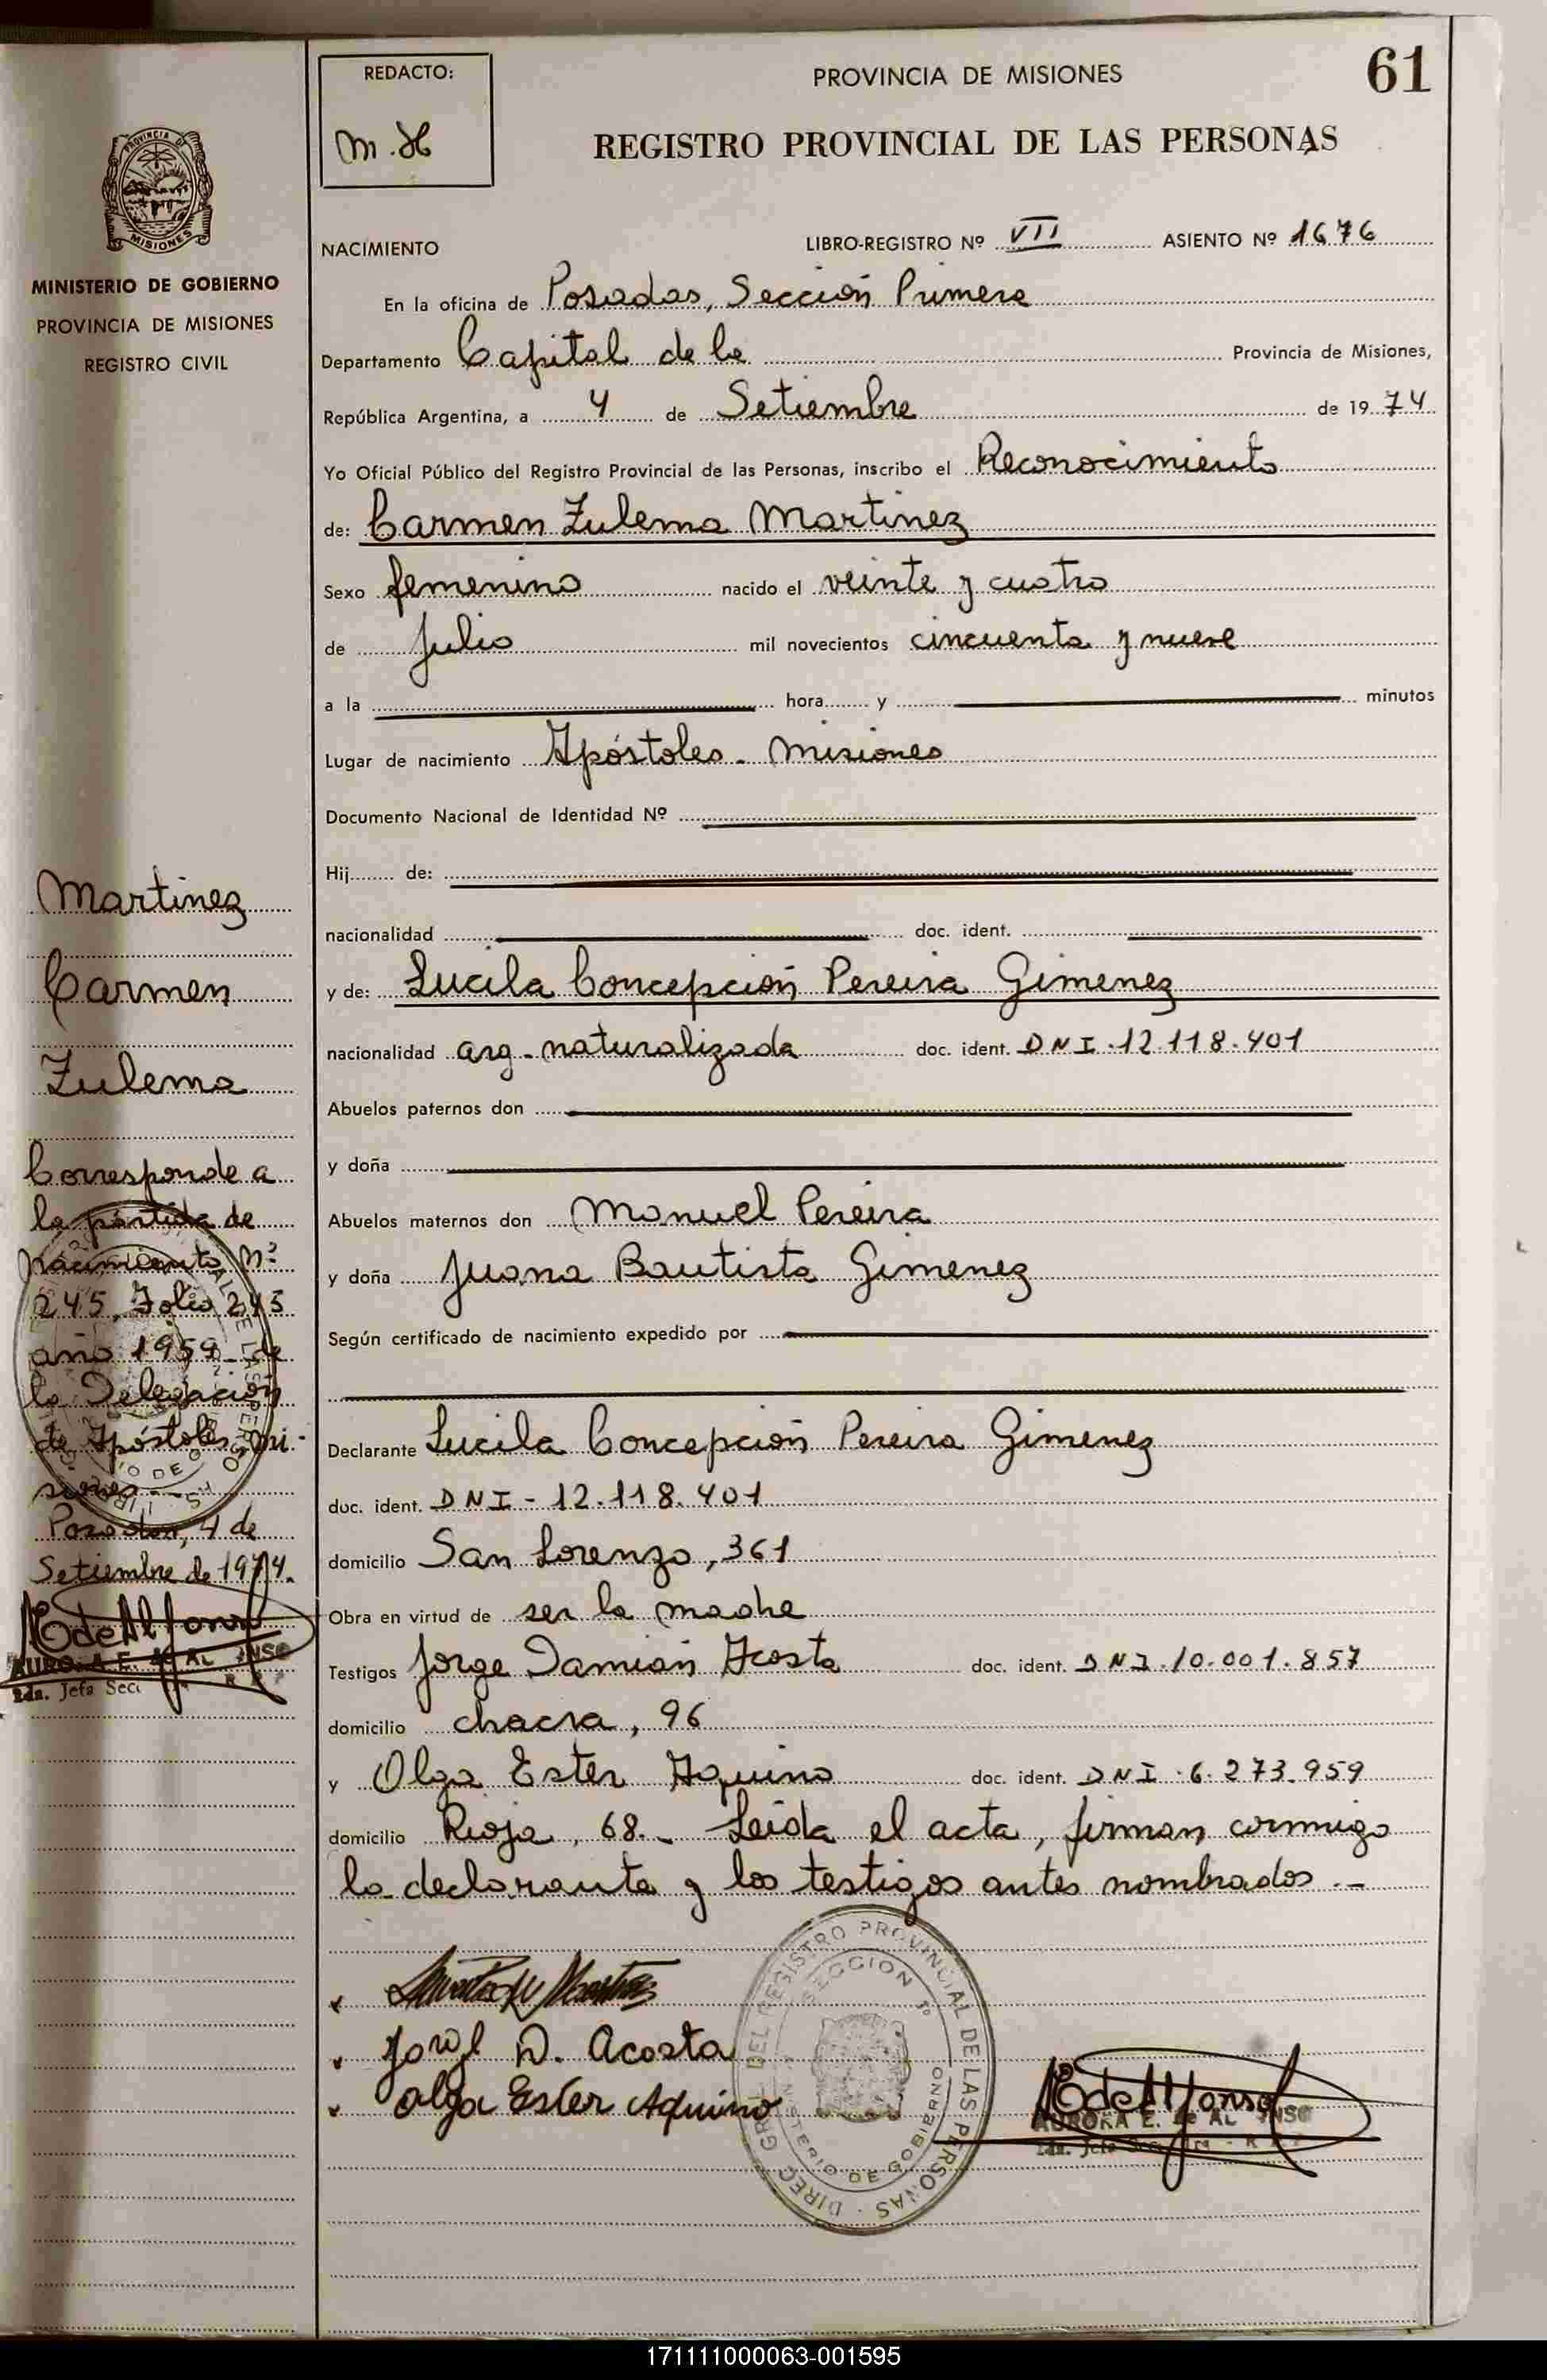 61
REDACTO:
PROVINCIA DE MISIONES
M. H
REGISTRO PROVINCIAL DE LAS PERSONAS
PROVINCIA DE
MISIONES
MINISTERIO DE GOBIERNO
PROVINCIA DE MISIONES
REGISTRO CIVIL
NACIMIENTO LIBRO-REGISTRO Nº VII ASIENTO Nº 1676
En la oficina de Posadas, Sección Primera
Departamento Capital de la Provincia de Misiones,
República Argentina, a 4 de Setiembre de 19 74
Yo Oficial Público del Registro Provincial de las Personas, inscribo el Reconocimiento
de: Carmen Zulema Martinez
Sexo femenino nacido el veinte y cuatro
de Julio mil novecientos cincuenta y nueve
a la hora y minutos
Lugar de nacimiento Apóstoles - Misiones
Documento Nacional de Identidad Nº
Hij de:
nacionalidad doc. ident.
y de: Lucila Concepción Pereira Gimenez
nacionalidad arg. naturalizada doc. ident. DNI. 12.118.401
Abuelos paternos don
y doña
Abuelos maternos don Manuel Pereira
y doña Juana Bautista Gimenez
Según certificado de nacimiento expedido por
Declarante Lucila Concepción Pereira Gimenez
doc. ident. DNI - 12.118.401
domicilio San Lorenzo, 361
Obra en virtud de ser la madre
Testigos Jorge Damián Acosta doc. ident. DNI. 10.001.857
domicilio chacra, 96
y Olga Ester Aquino doc. ident. DNI. 6.273.959
domicilio Rioja, 68. - Leída el acta, firman conmigo
la declarante y los testigos antes nombrados. -
Jorge D. Acosta
Olga Ester Aquino
DIREC. GRAL. DEL REGISTRO PROVINCIAL DE LAS PERSONAS
SECCION 1º
MINISTERIO DE GOBIERNO
AURORA E. de ALFONSO
Martinez
Carmen
Zulema
Corresponde a
la partida de
nacimiento Nº
245, Folio 245
año 1959 - de
la Delegación
de Apóstoles, Mi-
siones -
Posadas, 4 de
Setiembre de 1974.
AURORA E. de ALFONSO
171111000063-001595